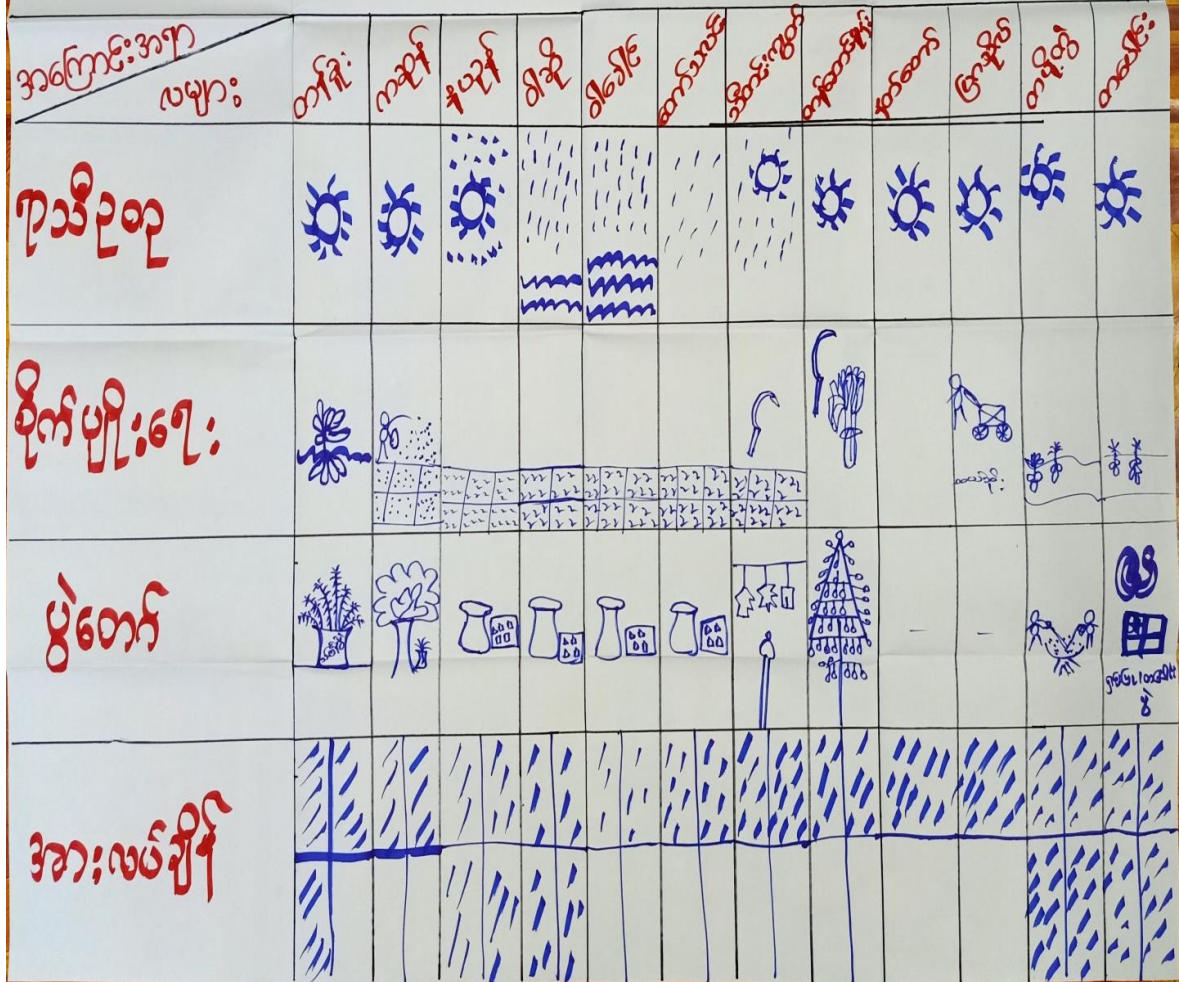 အကြောင်းအရာ
လများ
တန်ခူး
ကဆုန်
နယုန်
ဝါဆို
ဝါခေါင်
တော်သလင်း
သီတင်းကျွတ်
တန်ဆောင်မုန်း
နတ်တော်
ပြာသို
တပို့တွဲ
တပေါင်း
ရာသီဥတု
စိုက်ပျိုးရေး
ပွဲတော်
ပွဲ
အားလပ်ချိန်